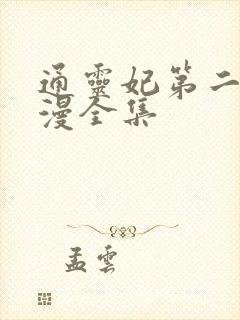 通靈妃第二
漫全集
孟雲